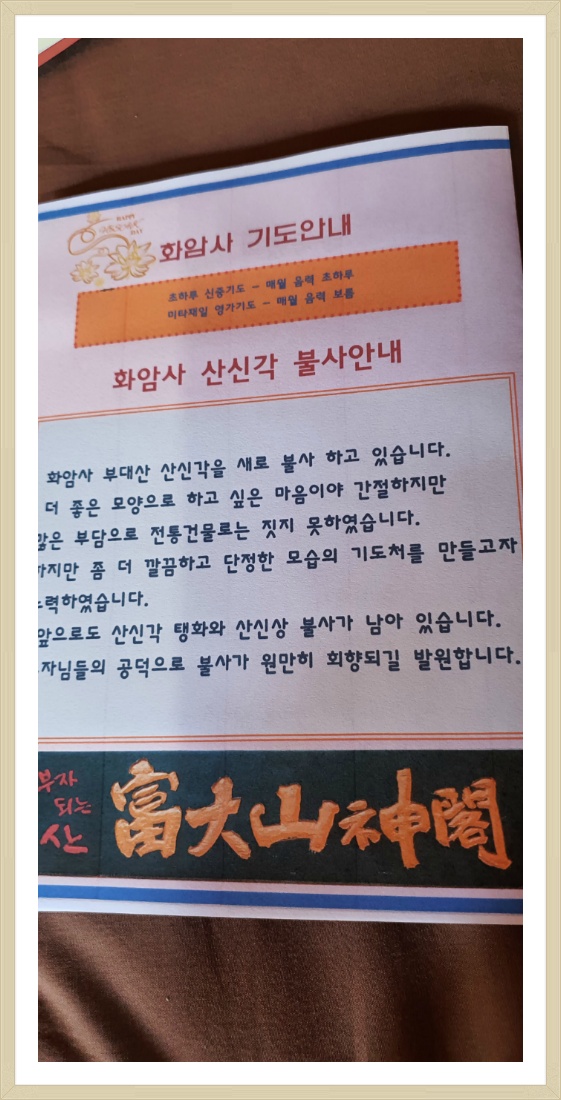 HAPPY
화암사 기도안내
초하루 신중기도 - 매월 음력 초하루
미타재일 영가기도 - 매월 음력 보름
화암사 산신각 불사안내
화암사 부대산 산신각을 새로 불사 하고 있습니다.
더 좋은 모양으로 하고 싶은 마음이야 간절하지만
많은 부담으로 전통건물로는 짓지 못하였습니다.
하지만 좀 더 깔끔하고 단정한 모습의 기도처를 만들고자
노력하였습니다.
앞으로도 산신각 탱화와 산신상 불사가 남아 있습니다.
자님들의 공덕으로 불사가 원만히 회향되길 발원합니다.
부자
되는
산
富大山神閣